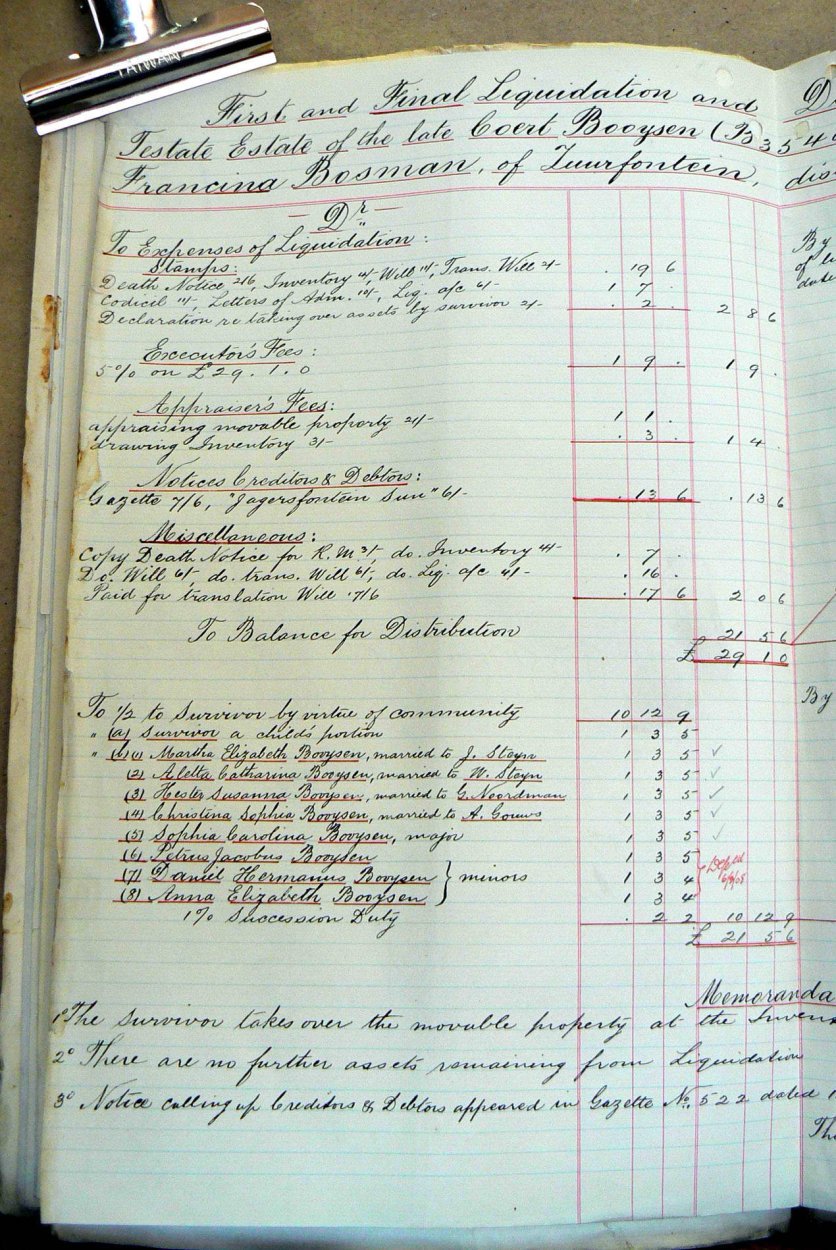 TAIWAN
First and Final Liquidation and
Testate Estate of the late Coert Booysen (B3544
Francina Bosman, of Zuurfontein,
— Dr —
To Expenses of Liquidation:
Stamps:
Death Notice 2/6, Inventory 4/-, Will 11/-, Trans. Will 2/- . 19 6
Codicil 1/-, Letters of Adm. 10/-, Liq. a/c 6/- 1 7
Declaration re taking over assets by survivor 2/- . 2 . 2 8 6
Executor's Fees:
5% on £29.1.0 1 9 . 1 9 .
Appraiser's Fees:
appraising movable property 21/- 1 1 .
drawing Inventory 3/- . 3 . 1 4 .
Notices Creditors & Debtors:
Gazette 7/6, "Jagersfontein Sun" 6/- . 13 6 . 13 6
Miscellaneous:
Copy Death Notice for R.M 3/-, do. Inventory 4/- . 7 .
Do. Will 6/-, do. trans. Will 6/-, do. Liq. a/c 4/- . 16 .
Paid for translation Will 17/6 . 17 6 2 0 6
To Balance for Distribution 21 5 6
£ 29 1 0
To 1/2 to Survivor by virtue of community 10 12 9
" (a) Survivor a child's portion 1 3 5
" (b) (1) Martha Elizabeth Booysen, married to J. Steyn 1 3 5 ✓
(2) Aletta Catharina Booysen, married to W. Steyn 1 3 5 ✓
(3) Hester Susanna Booysen, married to G. Noordman 1 3 5 ✓
(4) Christina Sophia Booysen, married to A. Gouws 1 3 5 ✓
(5) Sophia Carolina Booysen, major 1 3 5 ✓
(6) Petrus Jacobus Booysen 1 3 5
(7) Daniel Hermanus Booysen } minors 1 3 4
(8) Anna Elizabeth Booysen 1 3 4
1% Succession Duty . 2 2 10 12 9
£ 21 5 6
Memoranda
1° The survivor takes over the movable property at the
2° There are no further assets remaining from Liquidation
3° Notice calling up Creditors & Debtors appeared in Gazette No. 522 dated 1
By
of
date
By